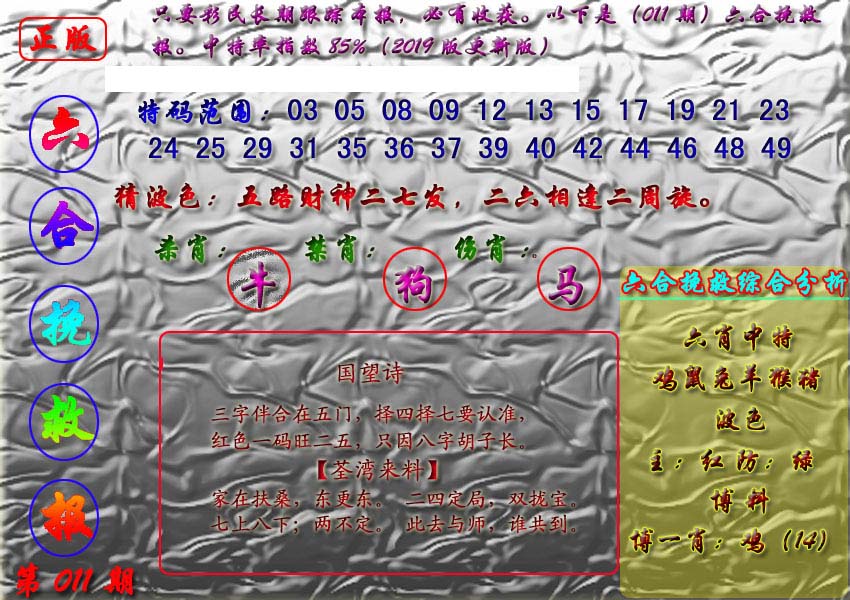 正版
只要彩民长期跟踪本报，必有收获。以下是（011期）六合挽救
报。中特率指数85%（2019版更新版）
六合挽救报
第011期
特码范围：03 05 08 09 12 13 15 17 19 21 23
24 25 29 31 35 36 37 39 40 42 44 46 48 49
猜波色：五路财神二七发，二六相逢二周旋。
杀肖：牛 禁肖：狗 伤肖：马
国望诗
三字伴合在五门，择四择七要认准，
红色一码旺二五，只因八字胡子长。
【荃湾来料】
家在扶桑，东更东。 二四定局，双拢宝。
七上八下；两不定。 此去与师，谁共到。
六合挽救综合分析
六肖中特
鸡鼠兔羊猴猪
波色
主：红 防：绿
博料
博一肖：鸡（14）